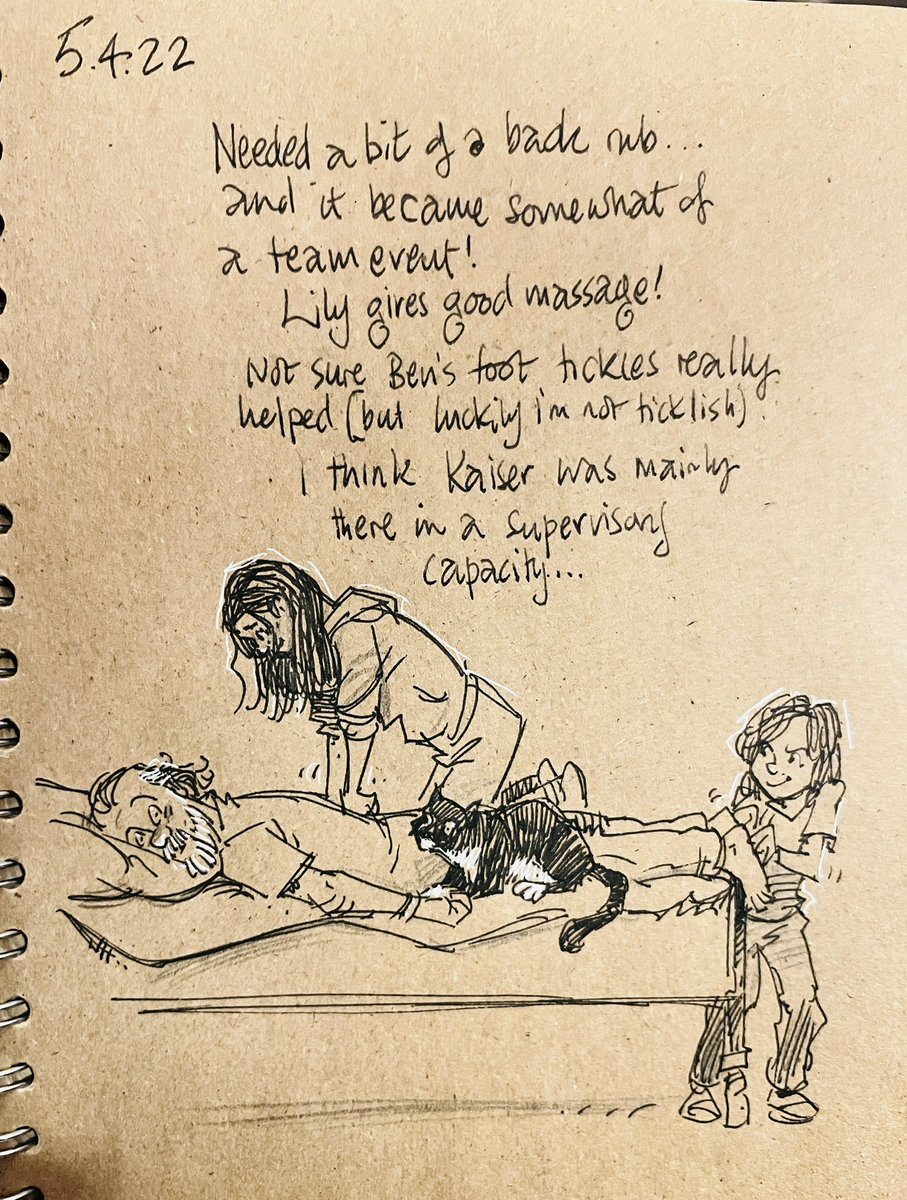 5.4.22
Needed a bit of a back rub...
and it became somewhat of
a team event!
Lily gives good massage!
Not sure Ben's foot tickles really
helped (but luckily i'm not ticklish).
I think Kaiser was mainly
there in a supervisory
capacity...